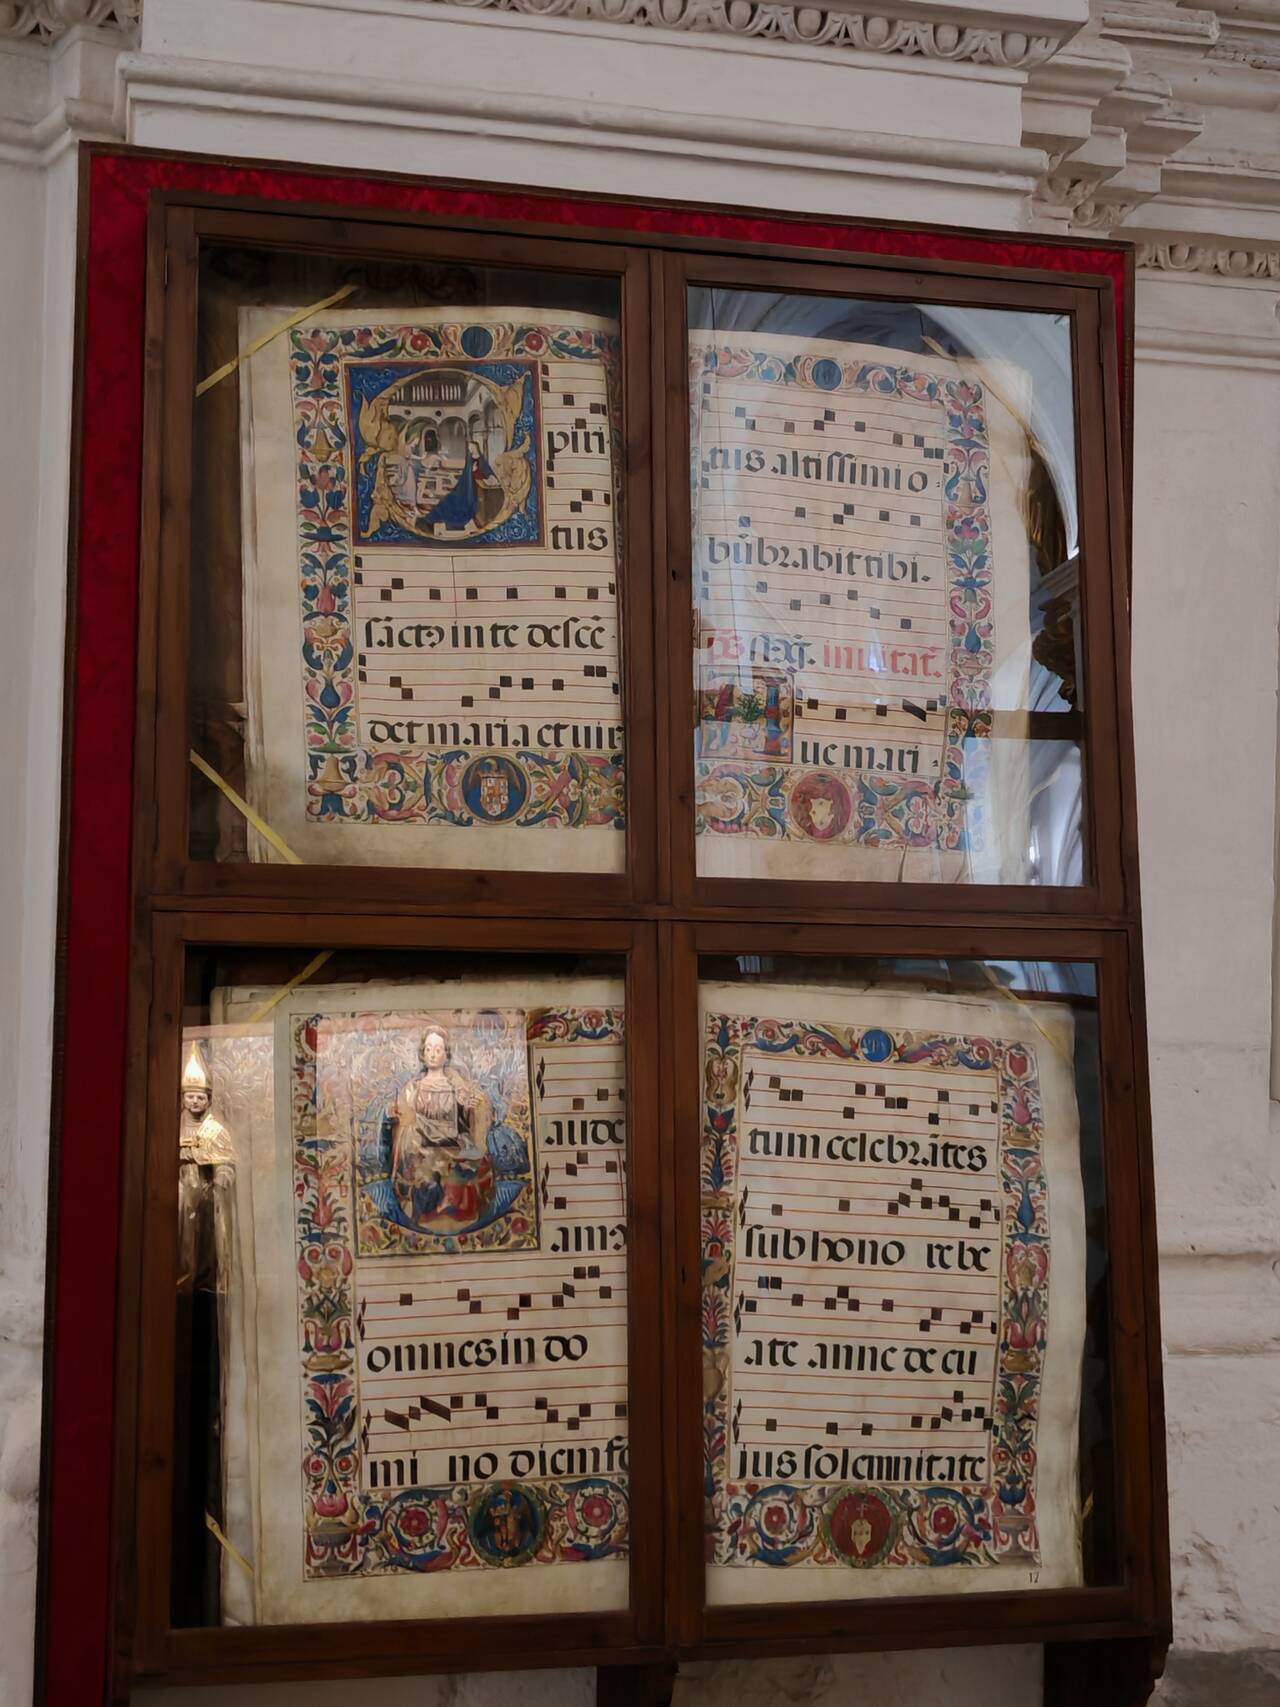 piri
tus
sāctꝰ in te desſcē
det maria et uir
tus altissimi o
būbrabit tibi.
inuitat.
ue mari
aude
amꝰ
omnes in do
mi no diem fe
tum celebrātes
sub hono re be
ate anne de cu
ius solemnitate
17